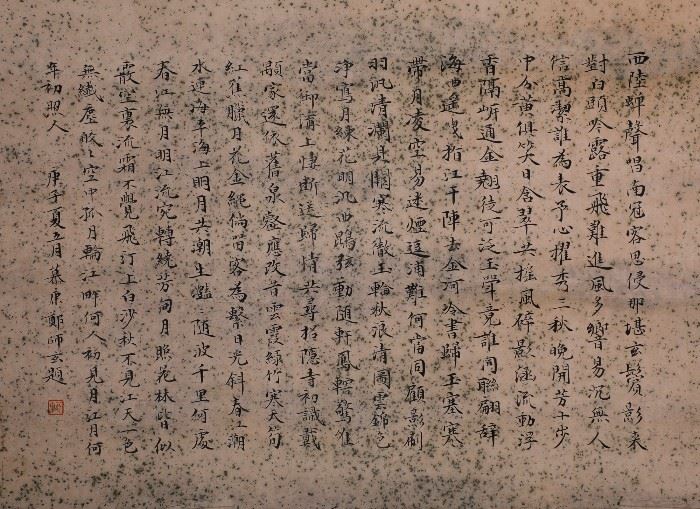 西陸蟬聲唱南冠客思侵那堪玄鬢影來
對白頭吟露重飛難進風多響易沉無人
信高潔誰為表予心擢秀三秋晚開芳十步
中分黃俱笑日含翠共搖風碎影涵流動浮
香隔岸通金翹徒可泛玉斝竟誰同聯翩辭
海曲遙曳指江干陣去金河冷書歸玉塞寒
帶月凌空易迷煙逗浦難何當同顧影刷
羽汎清瀾貝闕寒流徹玉輪秋浪清圖雲錦色
淨寫月練花明汎曲鵾弦動隨軒鳳轄驚惟
當御溝上悽斷送歸情共尋招隱寺初識戴
顒家還依舊泉壑應改昔雲霞綠竹寒天筍
紅蕉臘月花金繩倘留客為繫日光斜春江潮
水連海平海上明月共潮生灩〻隨波千里何處
春江無月明江流宛轉繞芳甸月照花林皆似
霰空裏流霜不覺飛汀上白沙看不見江天一色
無纖塵皎〻空中孤月輪江畔何人初見月江月何
年初照人 庚子夏五月 鄭師玄題